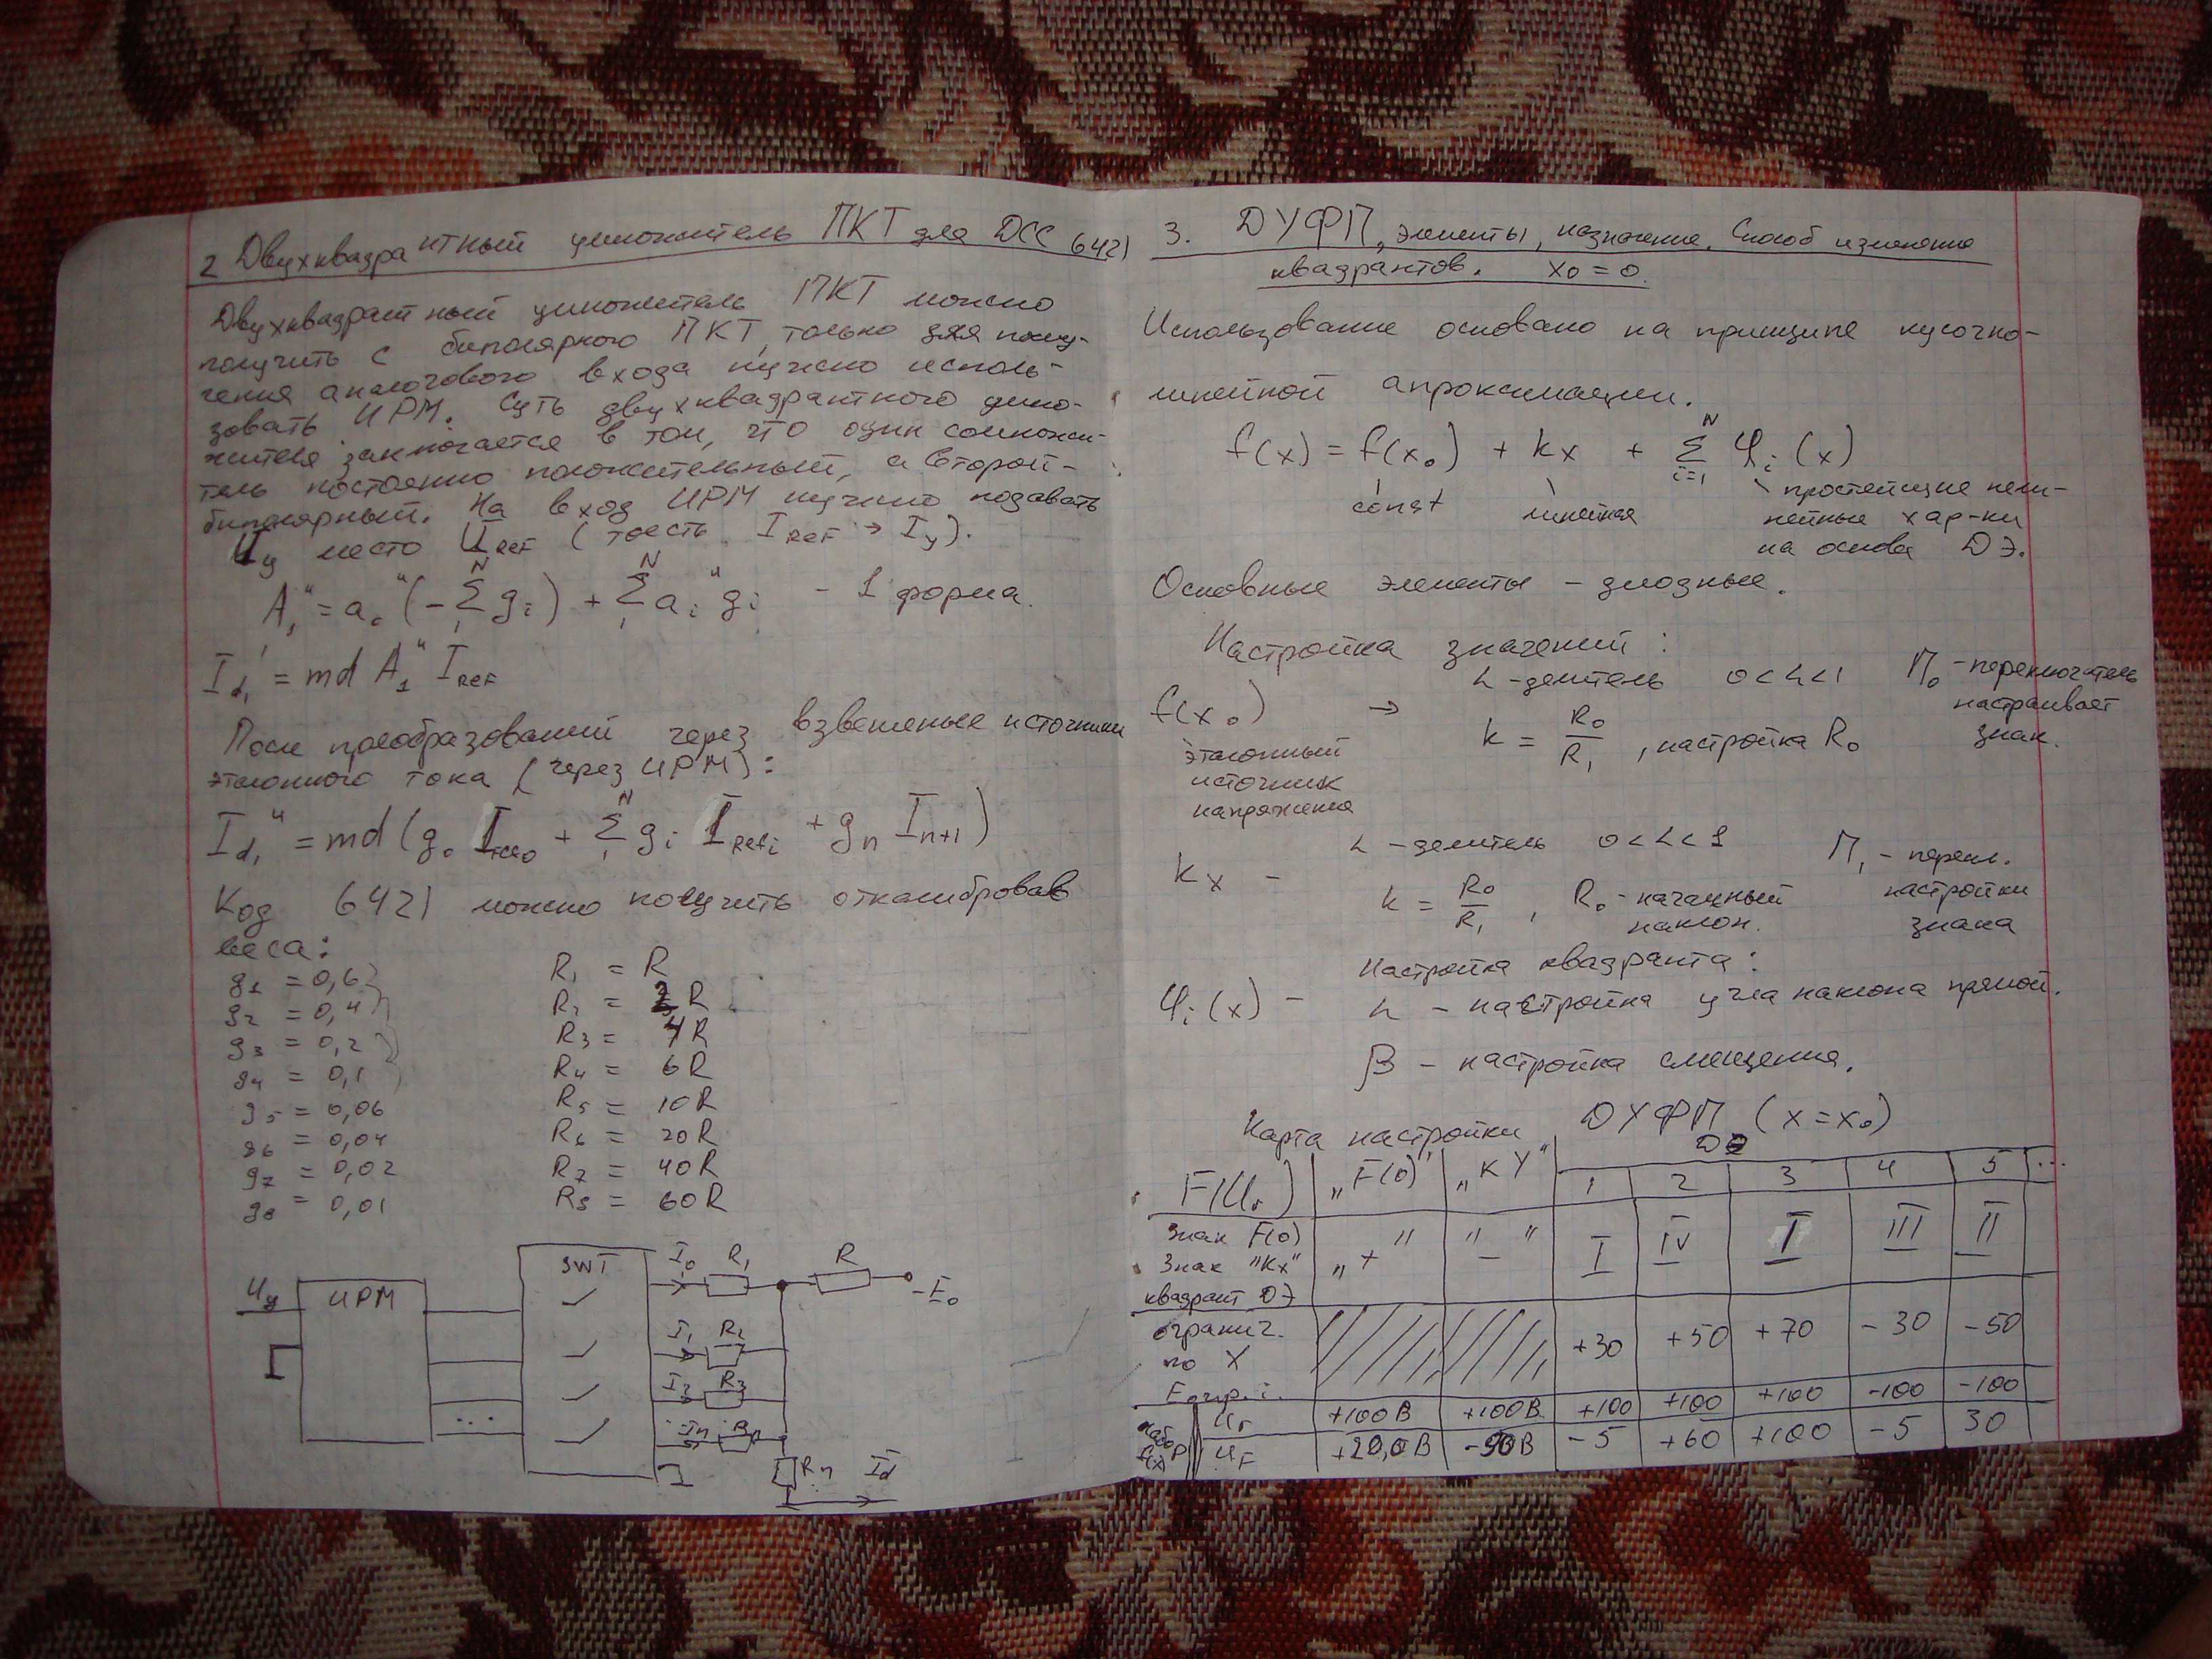 2 Двухквадрантный умножитель ПКТ для ДСС 6421
Двухквадрантный умножитель ПКТ можно
получить с биполярного ПКТ, только для полу-
чения аналогового входа нужно исполь-
зовать ИРМ. Суть двухквадрантного умно-
жителя заключается в том, что один сомножи-
тель постоянно положительный, а второй -
биполярный. На вход ИРМ нужно подавать
Uу место UREF (тоесть IREF → Iу).
A₁" = a₀"(-Σ₁ᴺ gi) + Σ₁ᴺ ai" gi - 1 форма.
Id₁' = md A₁" IREF
После преобразований через взвешеные источники
эталонного тока (через ИРМ):
Id₁" = md (g₀ I + Σ₁ᴺ gi Irefi + gn In+1)
Код 6421 можно получить откалибровав
веса:
g1 = 0,6 R1 = R
g2 = 0,4 R2 = 2R
g3 = 0,2 R3 = 4R
g4 = 0,1 R4 = 6R
g5 = 0,06 R5 = 10R
g6 = 0,04 R6 = 20R
g7 = 0,02 R7 = 40R
g8 = 0,01 R8 = 60R
Uy ИРМ SWT I0 R1 R -E0
I1 R2
I2 R3
... In Rn
Rн Id
3. ДУФП, элементы, назначение. Способ изменения
квадрантов. x0 = 0.
Использование основано на принципе кусочно-
линейной апроксимации.
f(x) = f(x0) + kx + Σi=1ᴺ φi(x)
const линейная простейшие нели-
нейные хар-ки
на основе ДЭ.
Основные элементы - диодные.
Настройка значений:
f(x0) → L - делитель 0 < L < 1 П0 - переключатель
настраивает
знак.
k = R0/R1, настройка R0
эталонный
источник
напряжения
kx - L - делитель 0 < L < 1 П1 - перекл.
настройки
знака
k = R0/R1, R0 - начальный
наклон.
Настройка квадранта:
φi(x) - L - настройка угла наклона прямой.
β - настройка смещения.
Карта настройки ДУФП (x = x0)
ДЭ
„F(0)" „КУ" 1 2 3 4 5 ...
Знак F(0)
Знак "Kx"
квадрант ДЭ „+" "-" I IV I III II
огранич.
по X +30 +50 +70 -30 -50
Eогр.i. +100В +100В +100 +100 +100 -100 -100
UF +20,0В -50В -5 +60 +100 -5 30